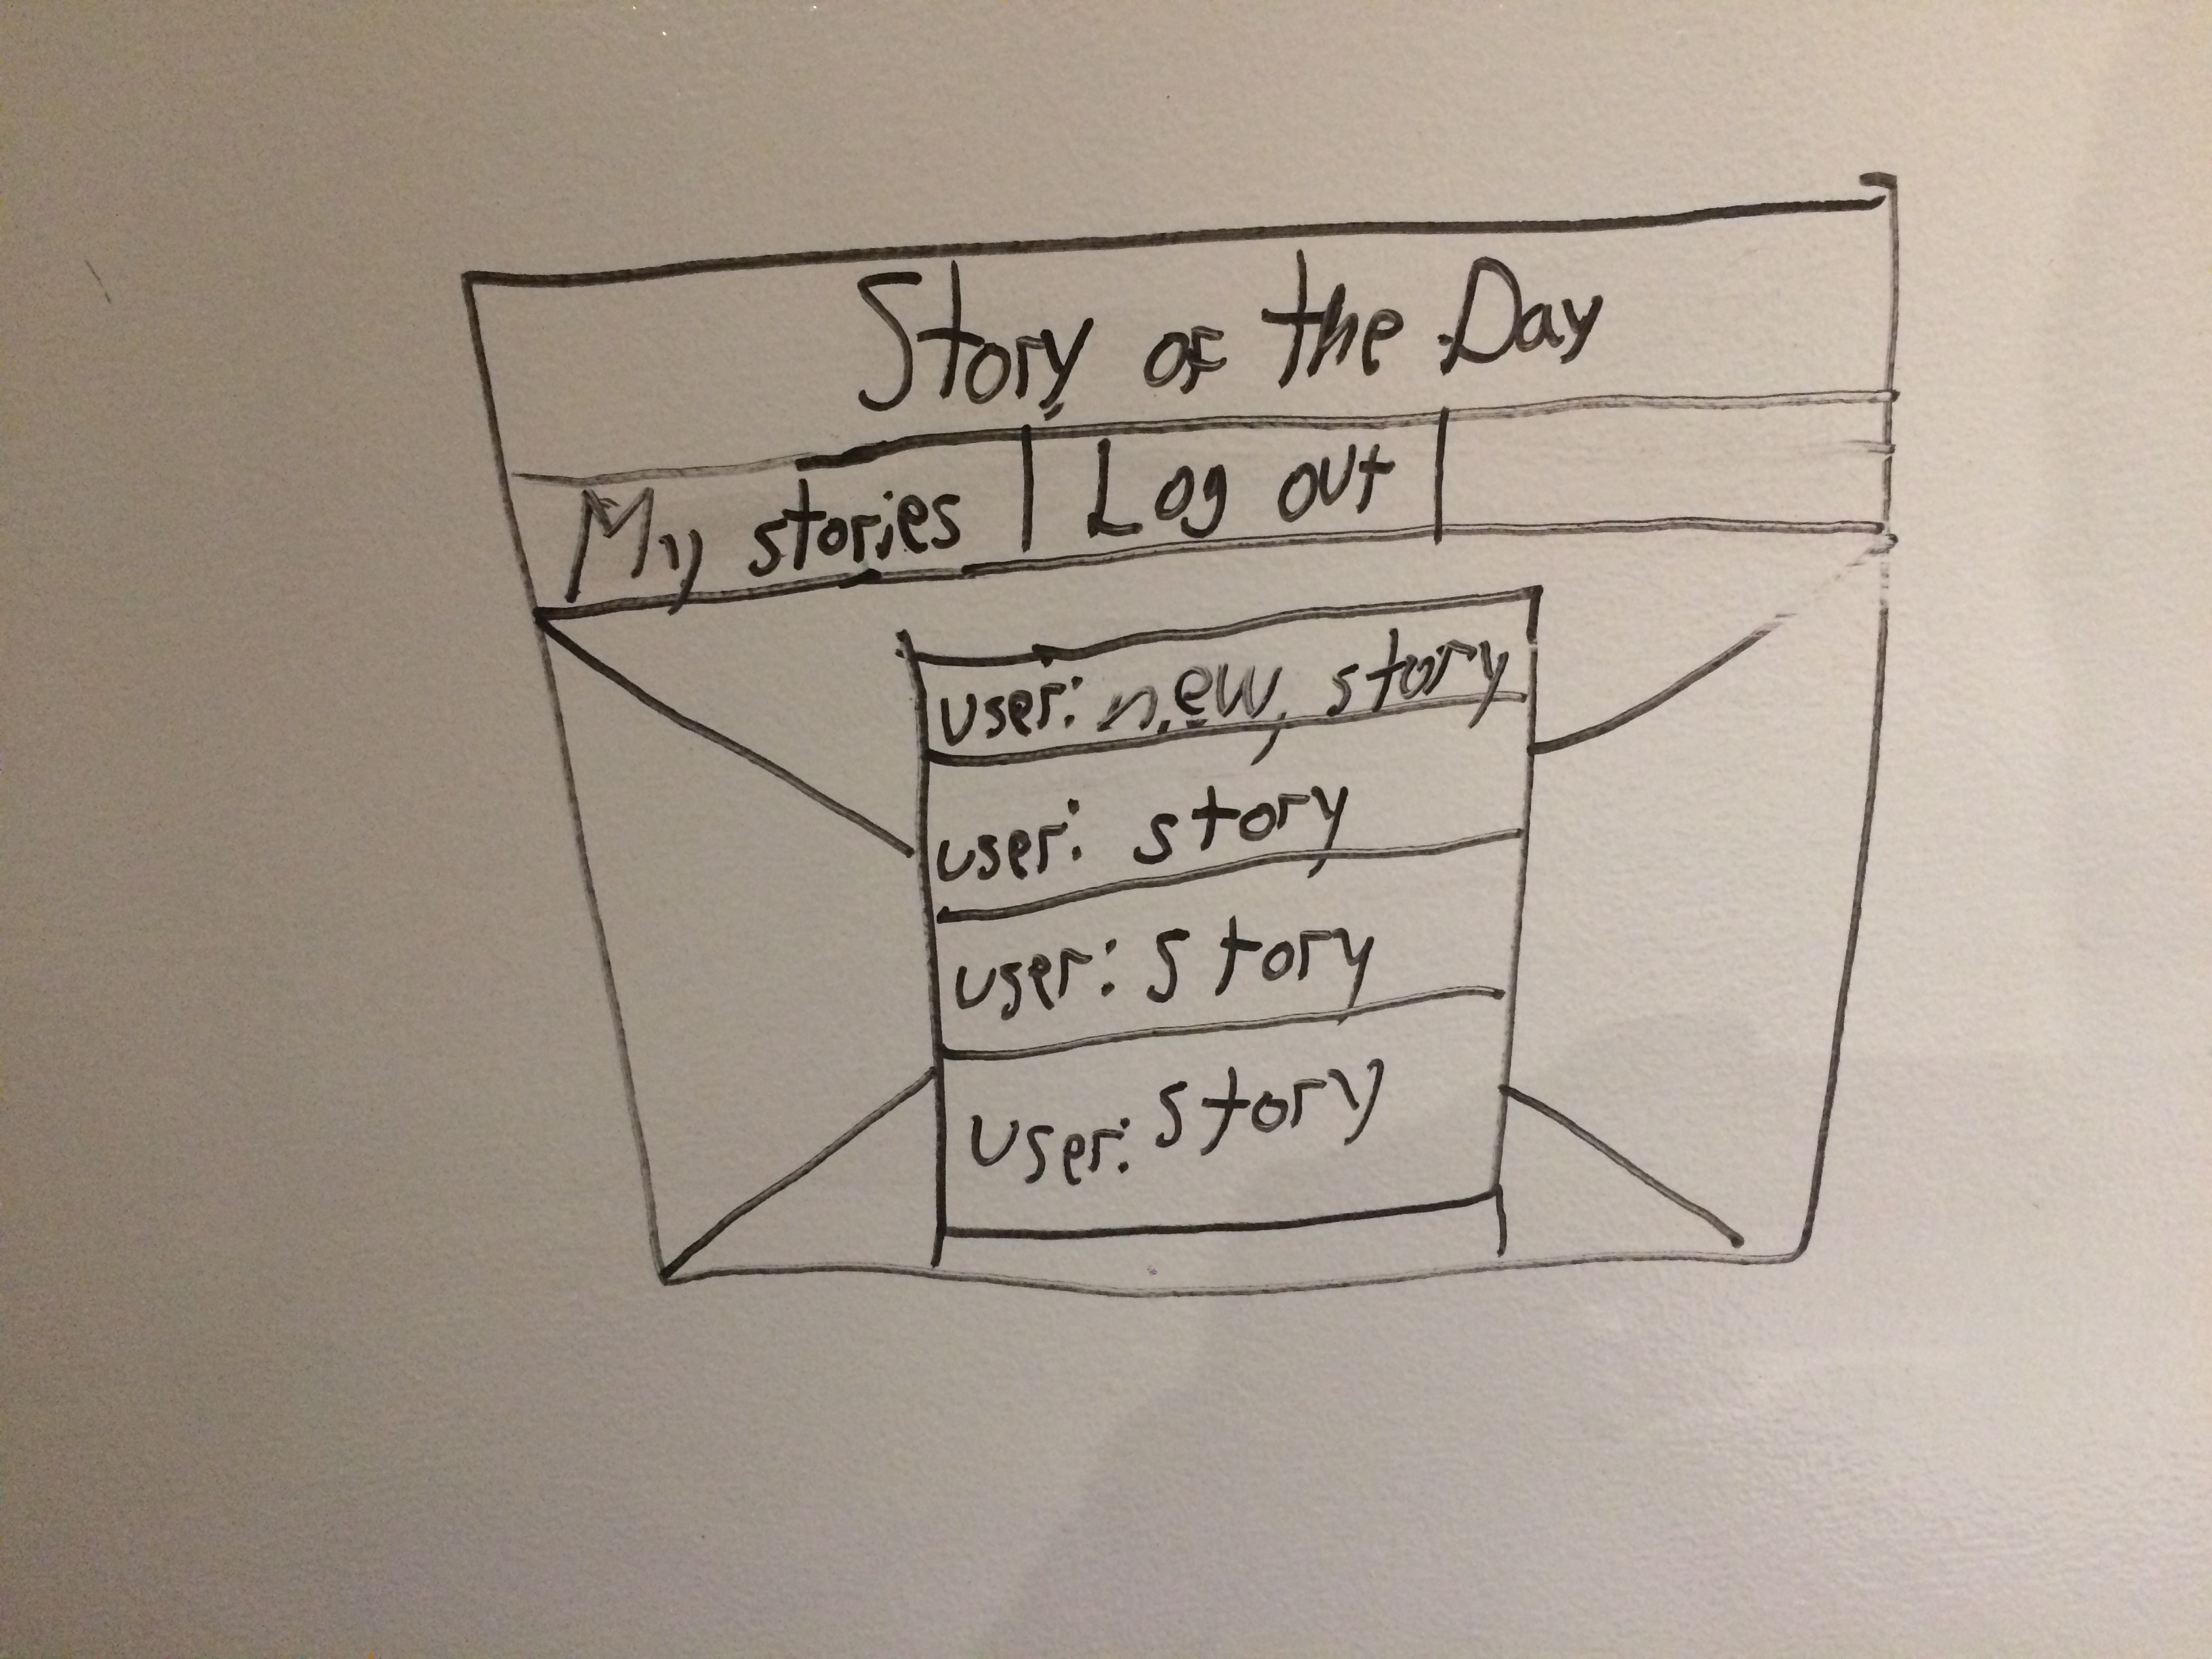 Story of the Day
My stories Log out
user: new story
user: story
user: story
user: story